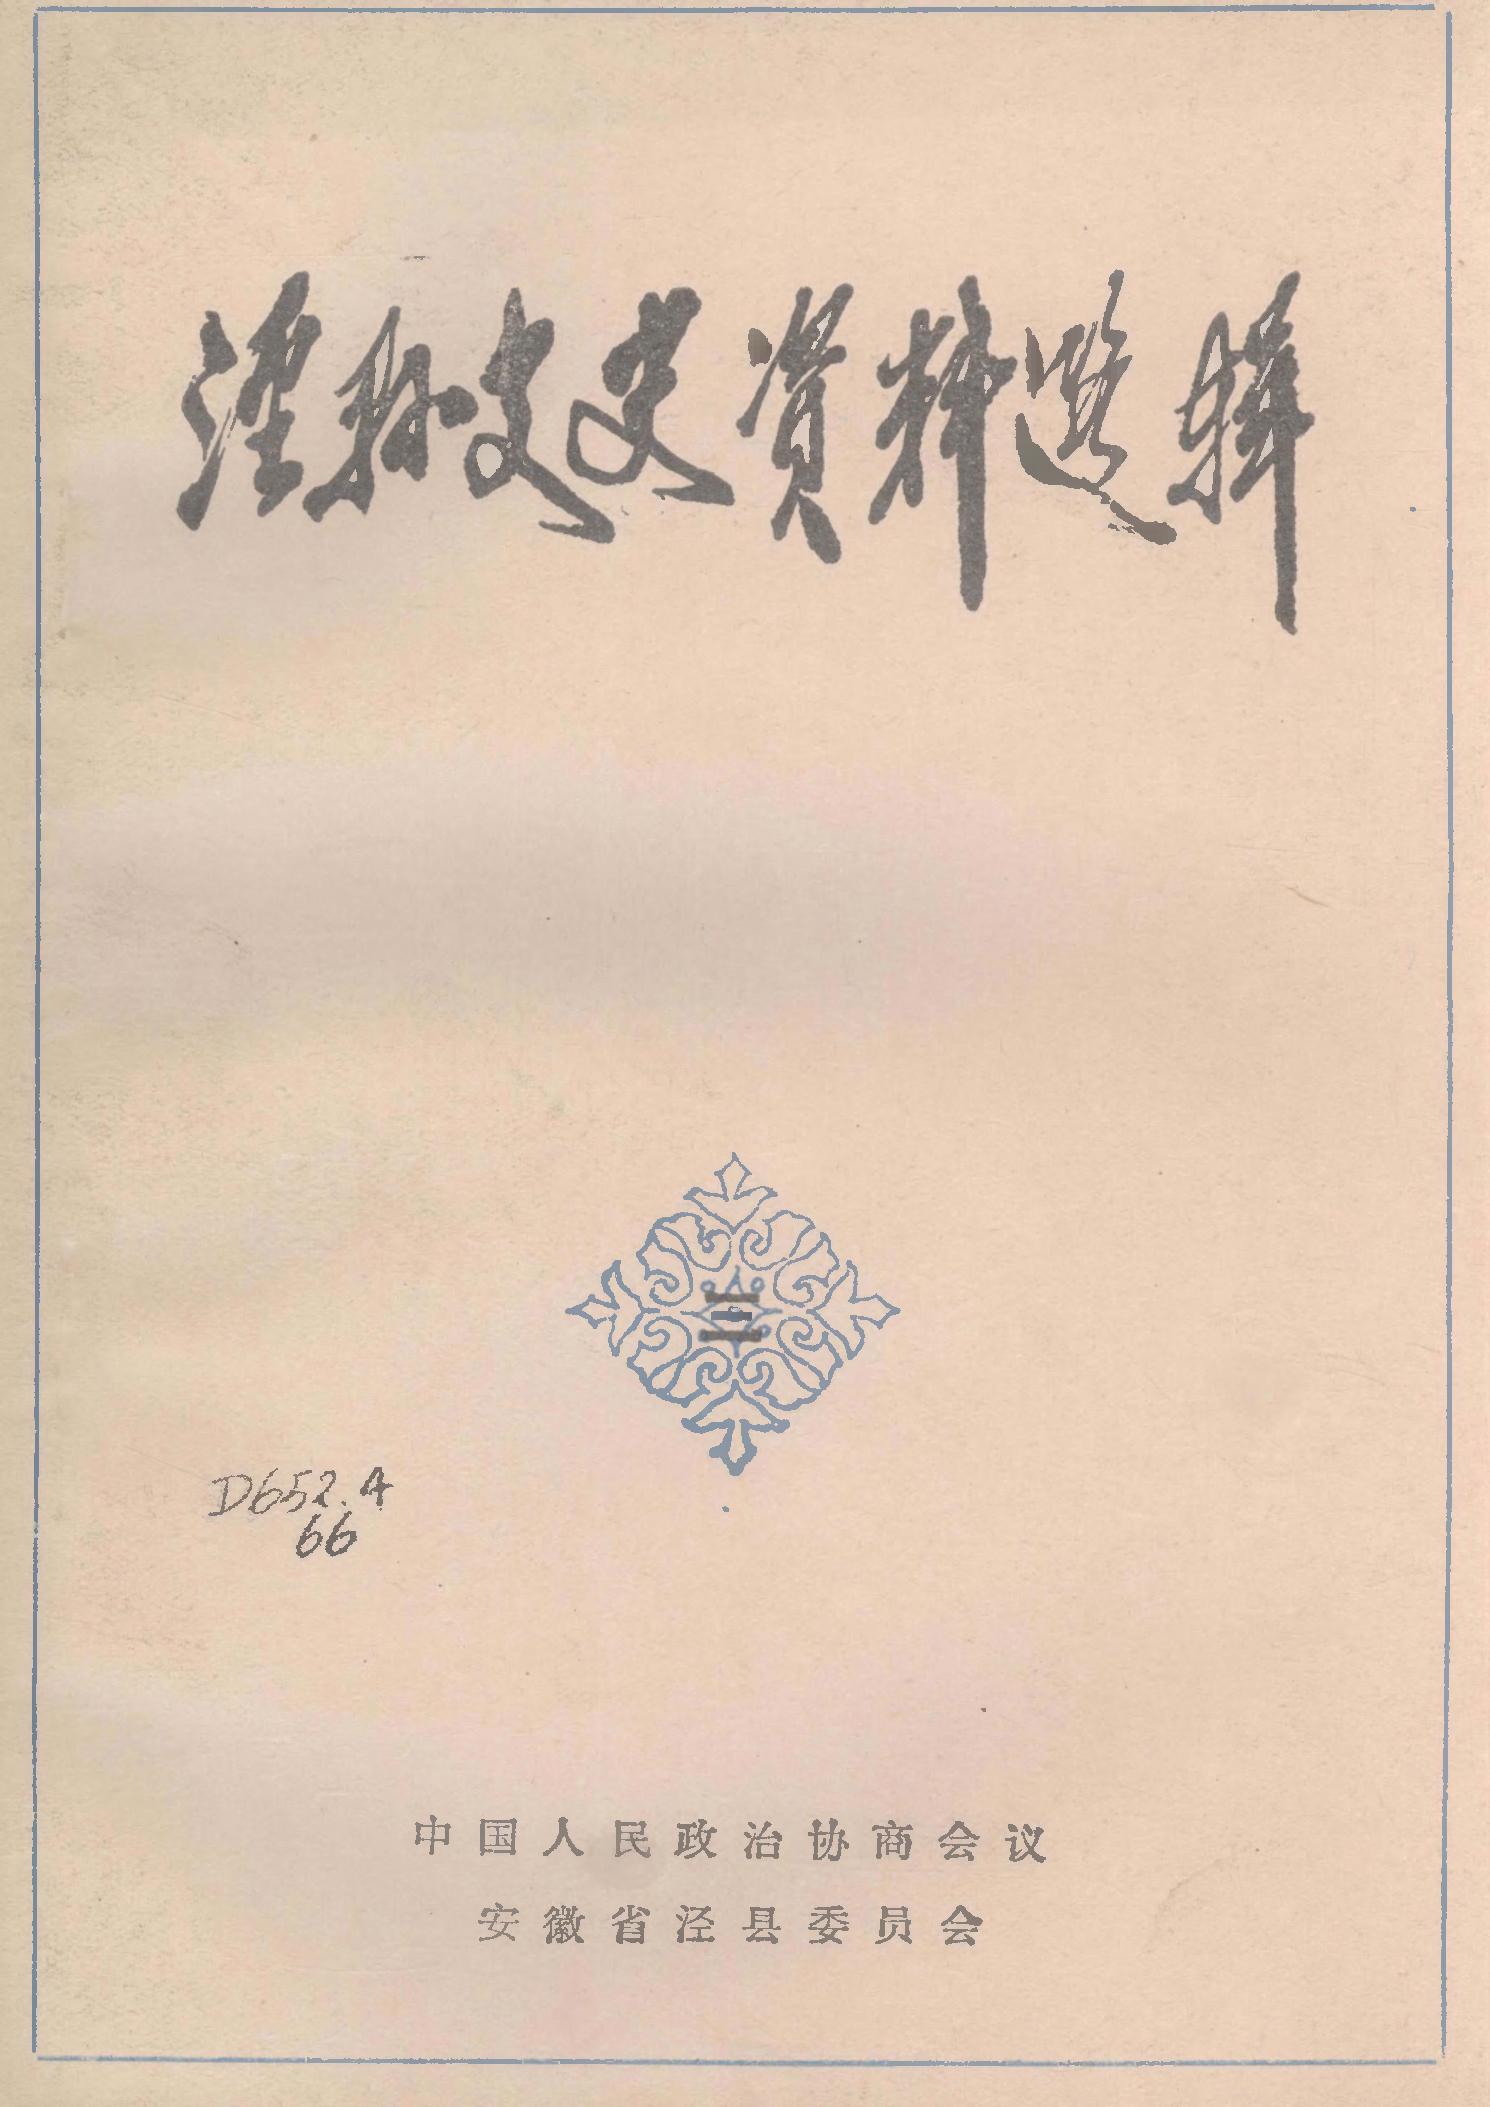 泾县文史资料选辑
三
D652.4
66
中国人民政治协商会议
安徽省泾县委员会